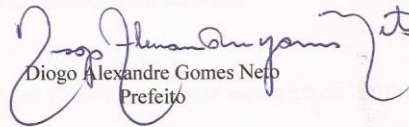 Diogo Alexandre Gomes Neto
Diogo Alexandre Gomes Neto
Prefeito